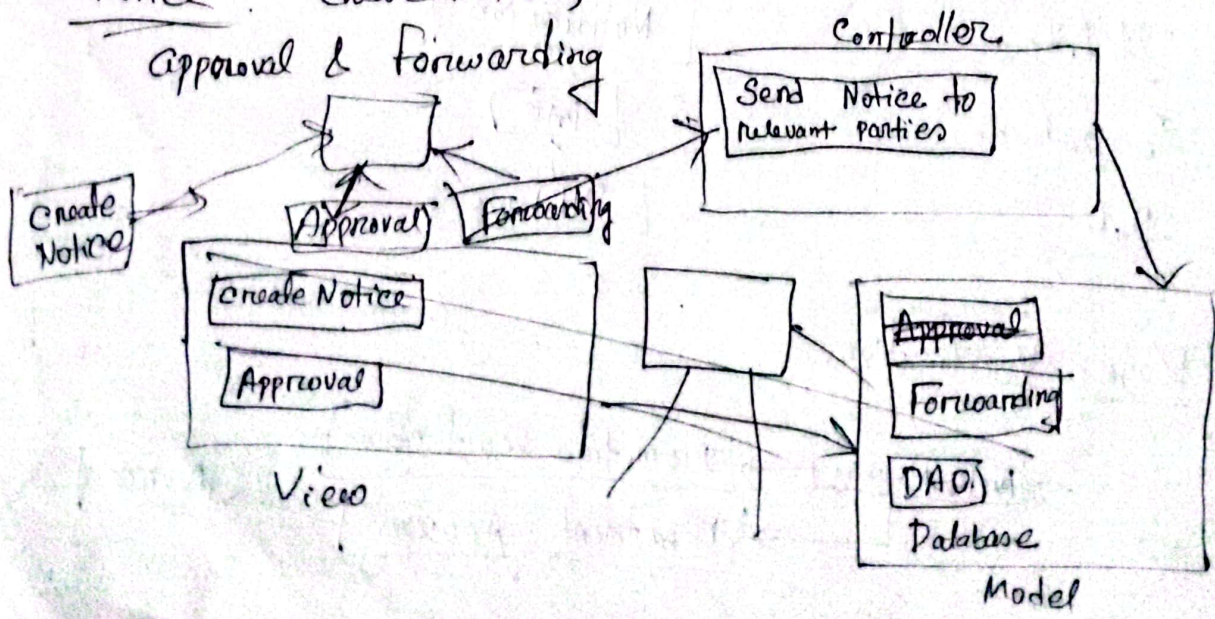 approval & forwarding
Controller
Send Notice to
relevant parties
Create
Notice
Approval
Forwarding
Create Notice
Approval
View
Approval
Forwarding
DAO
Database
Model